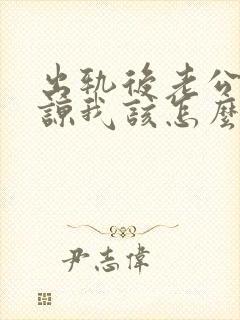 出轨後老公
諒我該怎麼
尹志偉